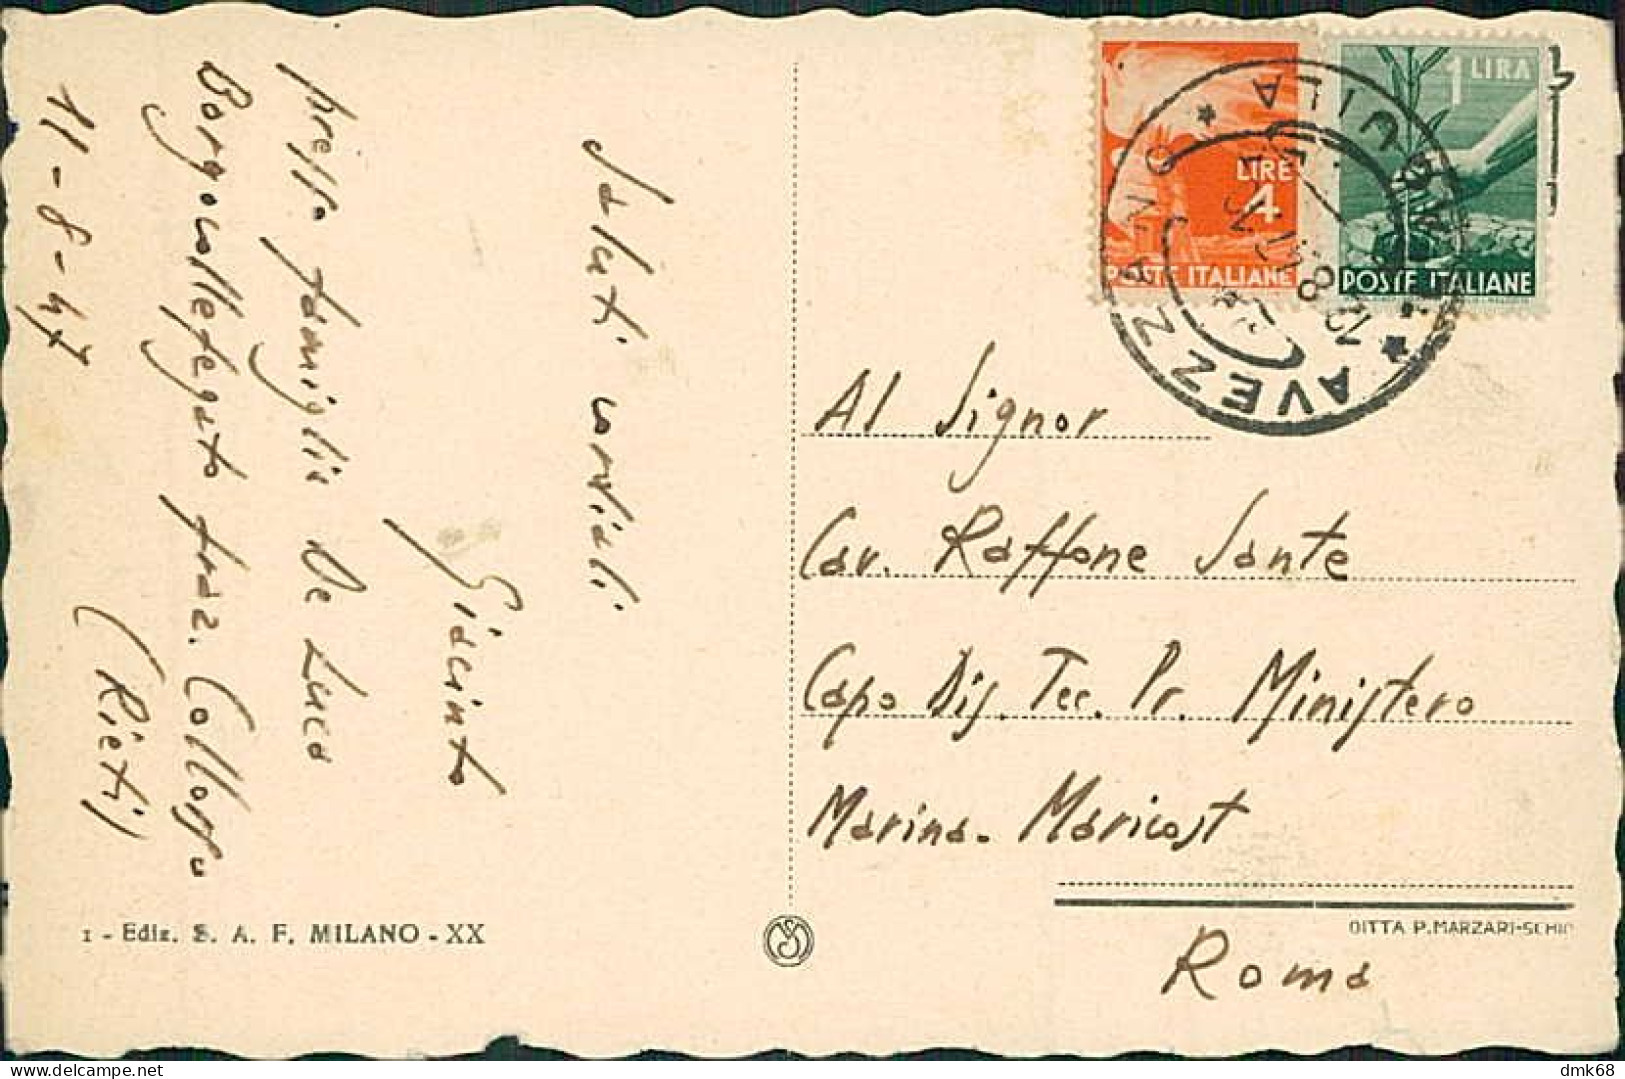 Saluti cordiali
Giacinto
presso famiglia De Luca
Borgocollefegato fraz. Collorso
(Rieti)
11-8-47
LIRE
4
POSTE ITALIANE
1 LIRA
POSTE ITALIANE
* AVEZZANO *
Al Signor
Cav. Raffone Sante
Capo Dis. Tec. Pr. Ministero
Marina. Maricost
Roma
1 - Ediz. S. A. F. MILANO - XX
DITTA P. MARZARI-SCHIO
delcampe.net
dmk68